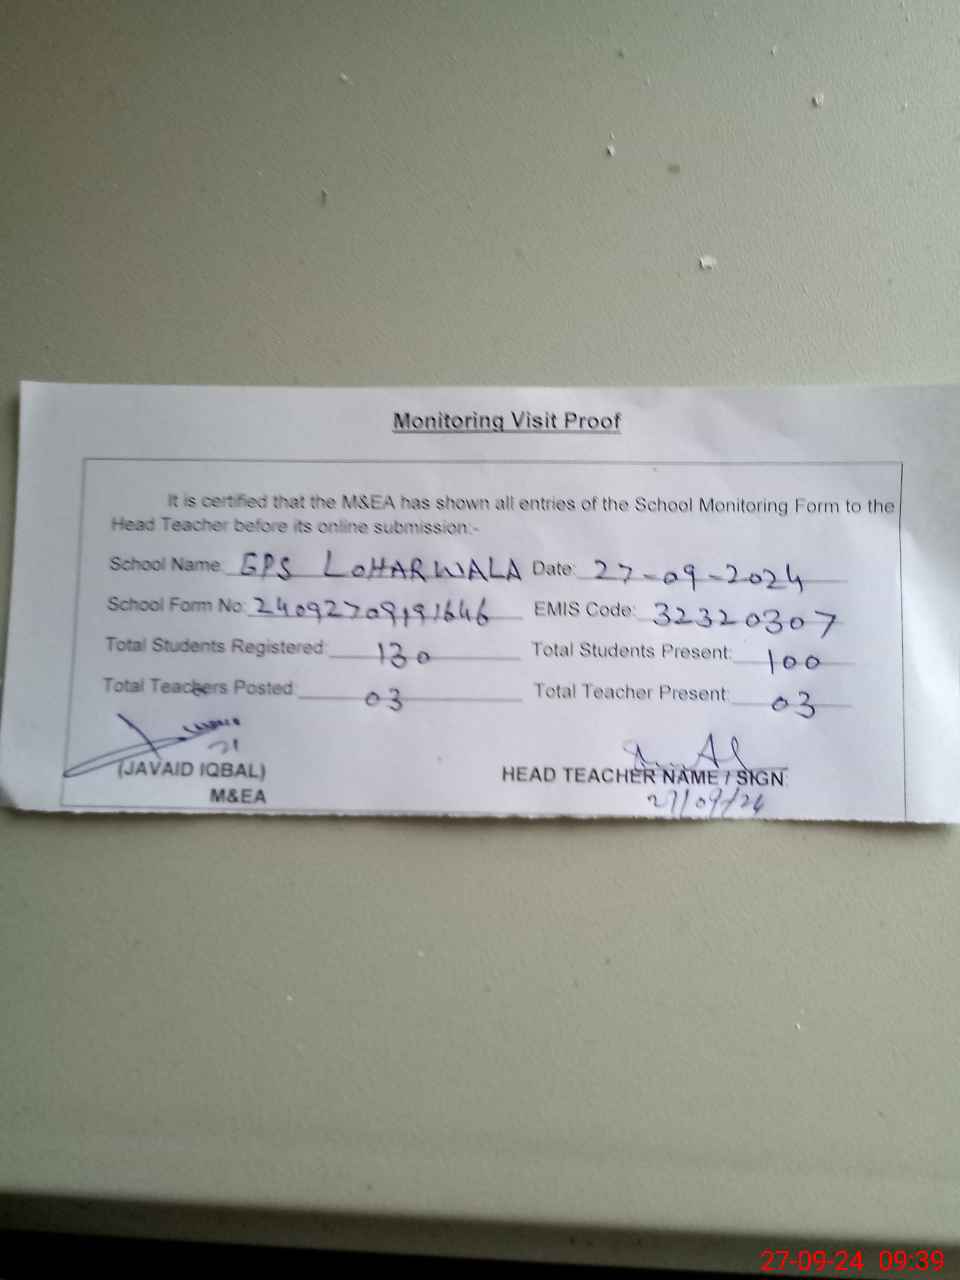 Monitoring Visit Proof
It is certified that the M&EA has shown all entries of the School Monitoring Form to the
Head Teacher before its online submission:-
School Name: GPS LOHARWALA Date: 27-09-2024
School Form No: 24092709191646 EMIS Code: 32320307
Total Students Registered: 130 Total Students Present: 100
Total Teachers Posted: 03 Total Teacher Present: 03
(JAVAID IQBAL)
M&EA
HEAD TEACHER NAME / SIGN:
27/09/24
27-09-24 09:39